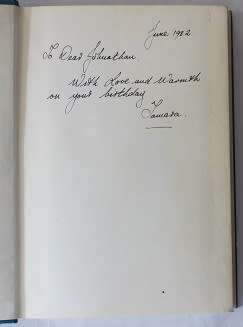 June 1982
To Dear Johnathan
With Love and Warmth
on your birthday
Tamara.